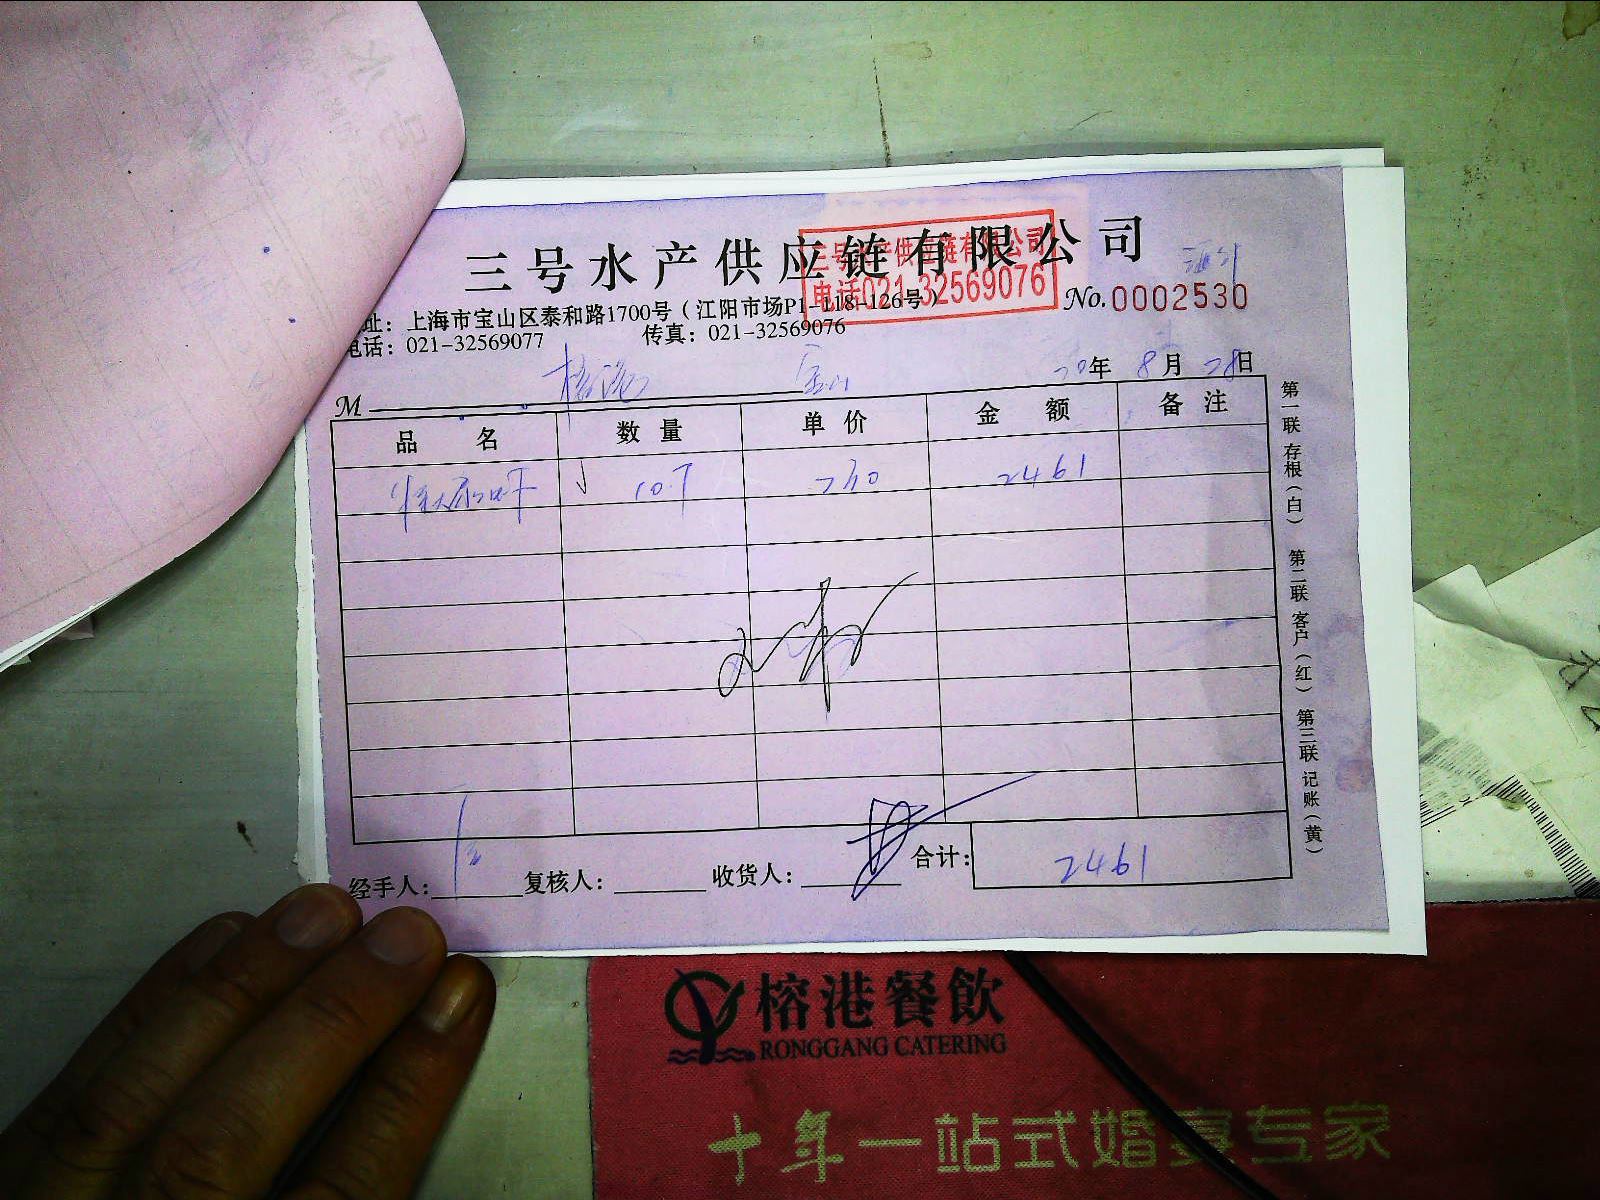 三号水产供应链有限公司
三号水产供应链有限公司
电话021-32569076
址：上海市宝山区泰和路1700号（江阳市场P1-118-126号）
No.0002530
电话：021-32569077 传真：021-32569076
榕港 宝山
20年 8月 28日
M
品名 数量 单价 金额 备注
10.7 230 2461
经手人： 复核人： 收货人： 合计： 2461
第一联 存根（白） 第二联 客户（红） 第三联 记账（黄）
榕港餐飲
RONGGANG CATERING
十年一站式婚宴专家